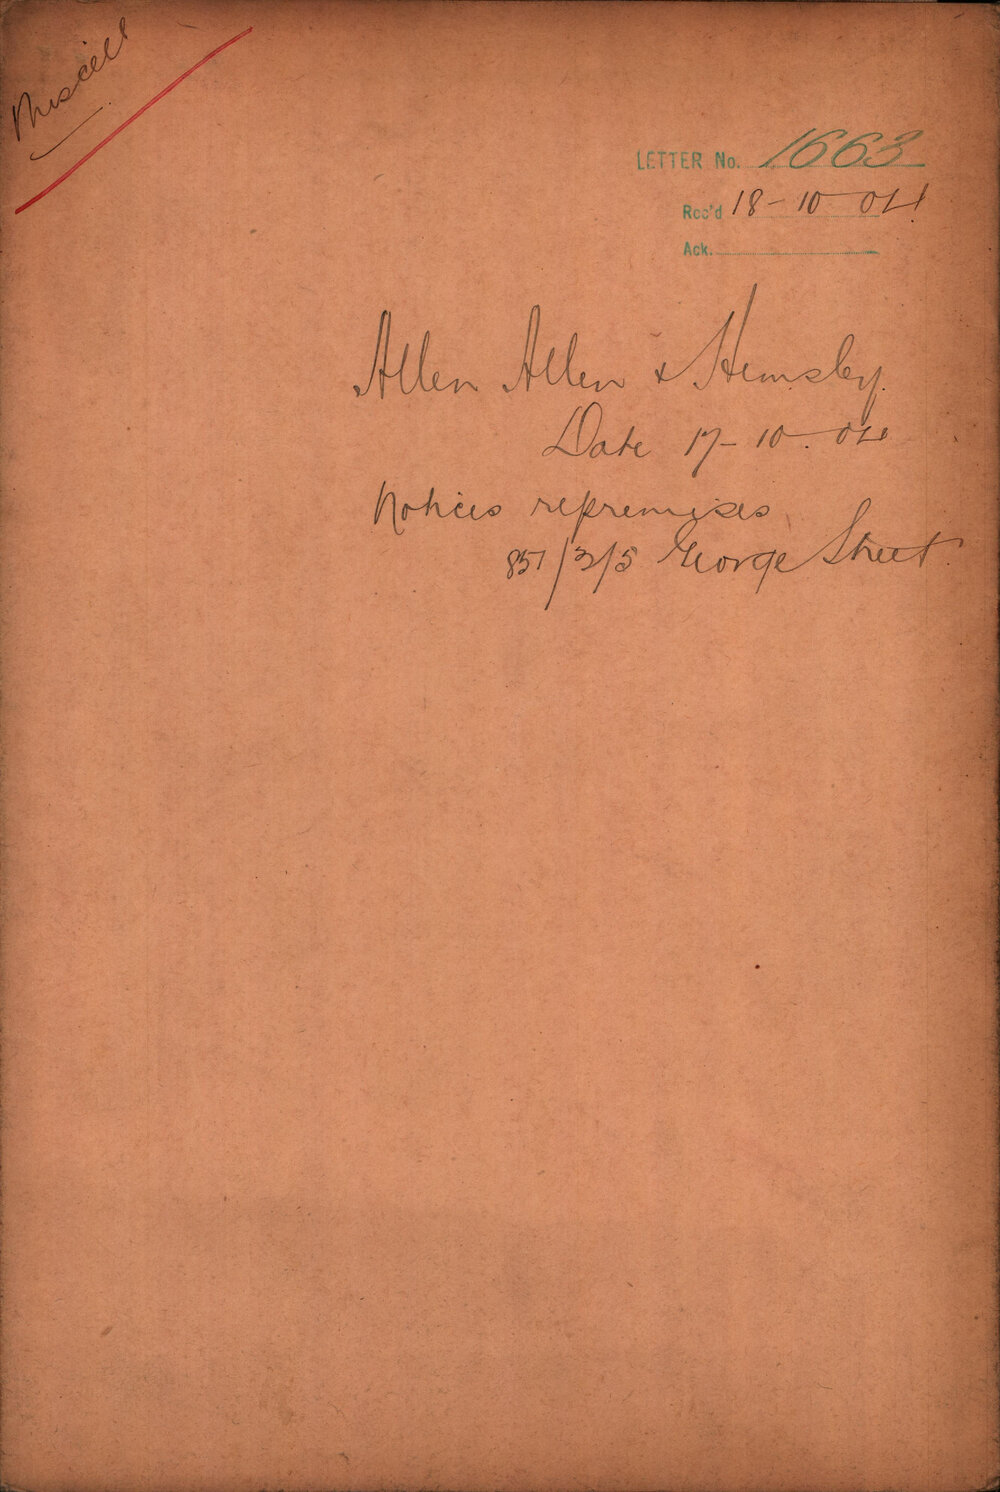 Miscell
LETTER No. 1663
Rec'd 18-10-04
Ack.
Allen Allen & Hemsley
Date 17-10-04
Notices re premises
851/3/5 George Street